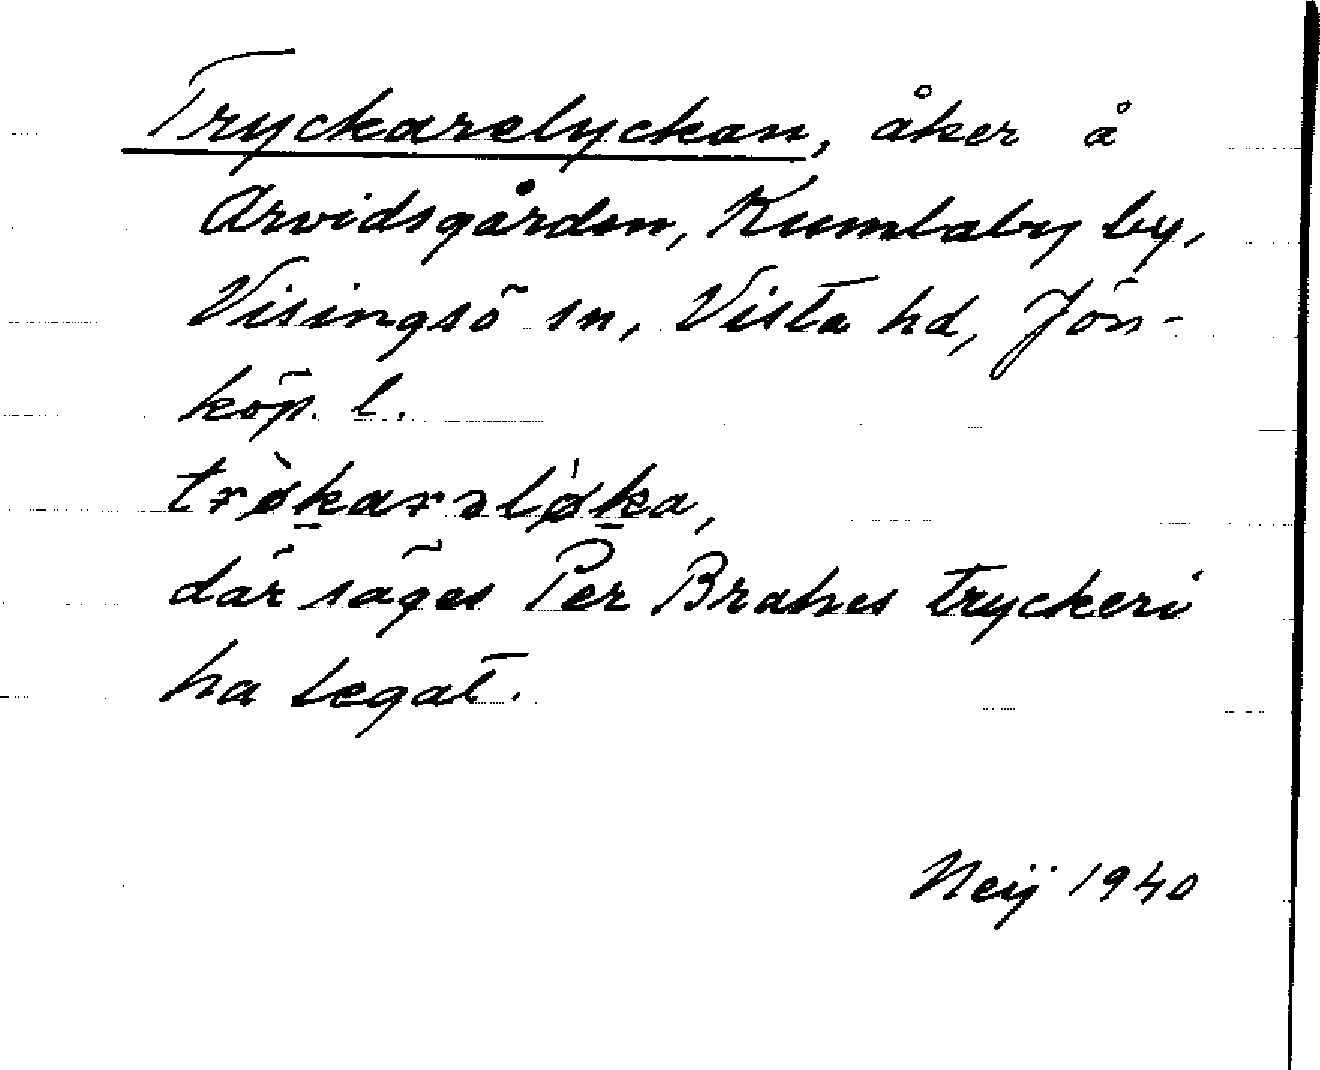 Tryckarelyckan, åker å
Arvidsgården, Kumlaby by,
Visingsö sn, Vista hd, Jön-
köp. l.
trø̀k̲arəlø̍k̲a,
där säges Per Brahes tryckeri
ha legat.
Neij 1940